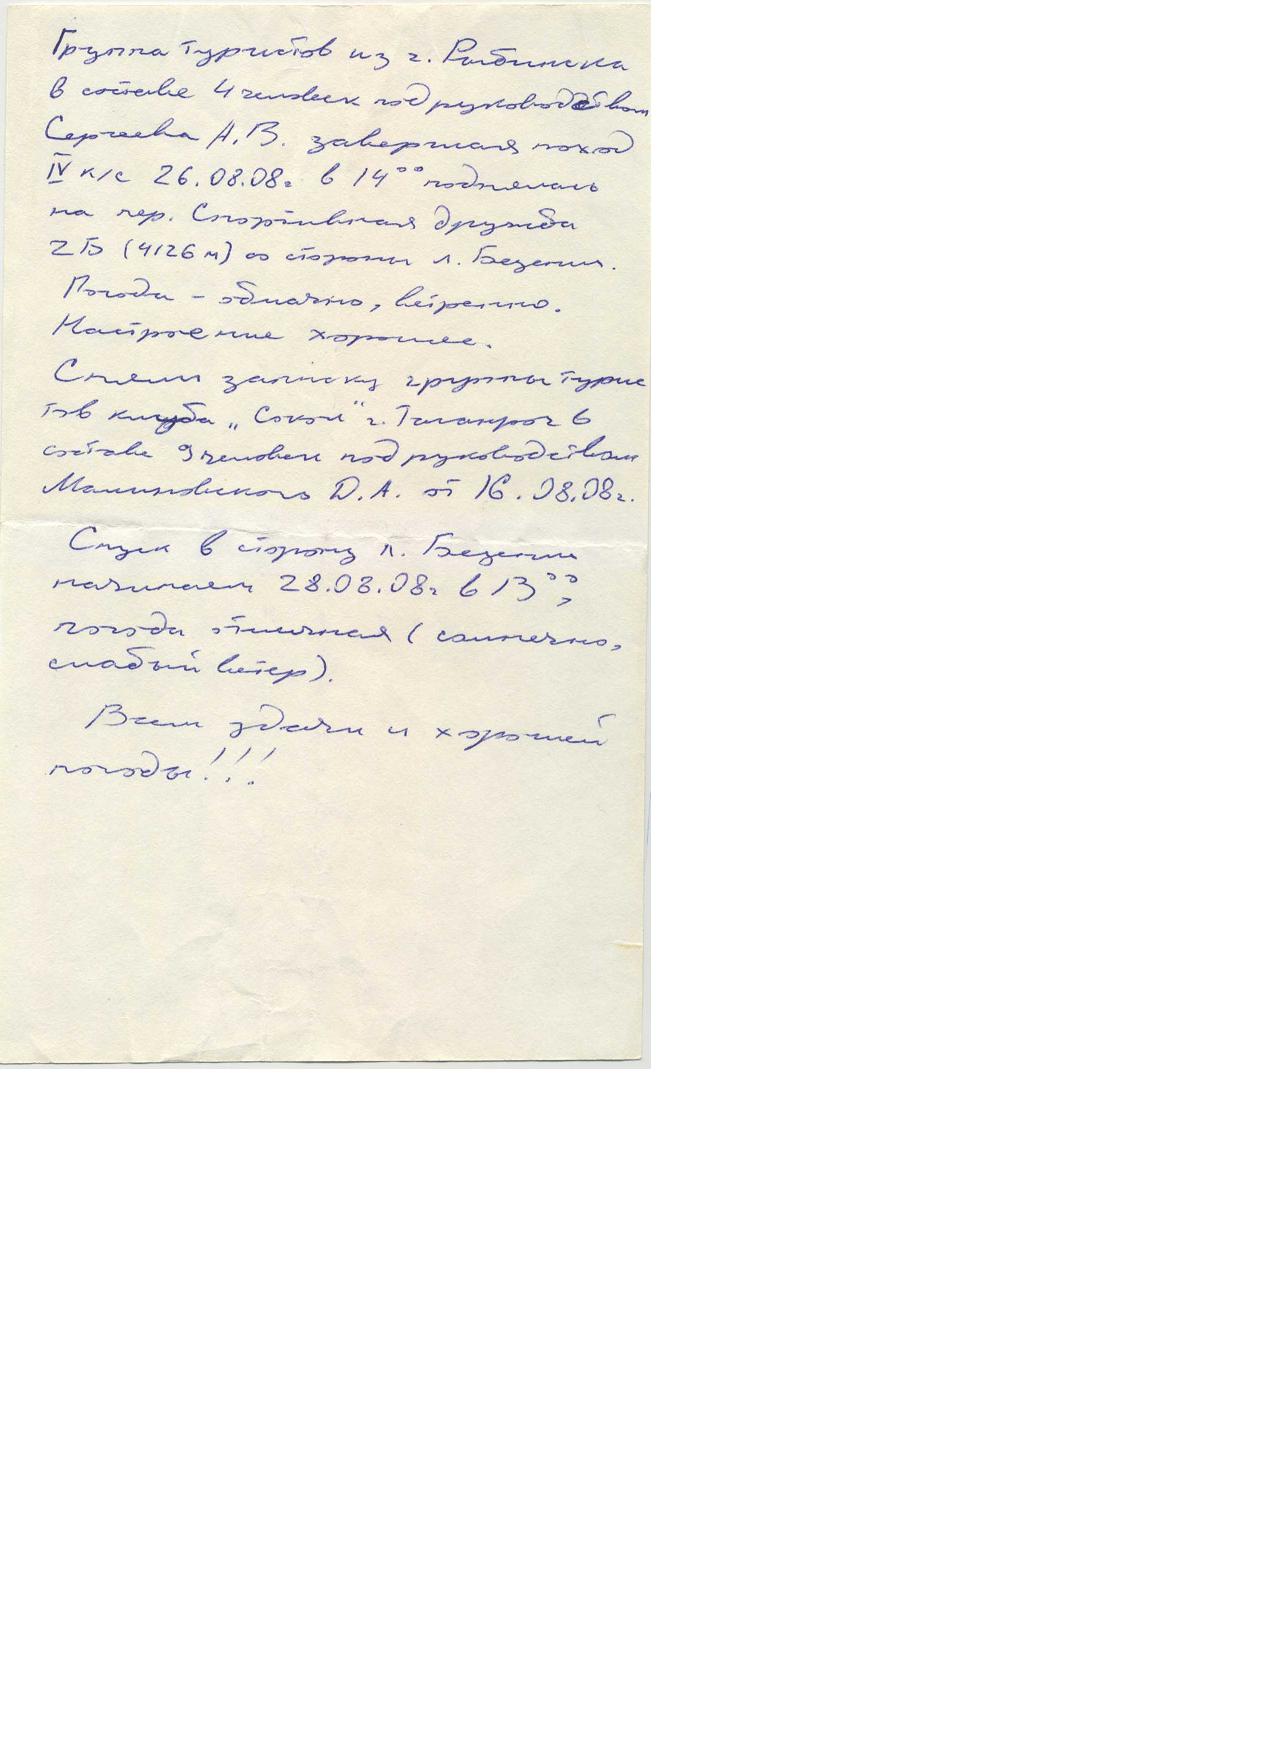 Группа туристов из г. Рыбинска
в составе 4 человек под руководством
Сергеева А.В. завершая поход
IV к/с 26.08.08г в 14⁰⁰ поднялась
на пер. Спортивная дружба
2Б (4126 м) со стороны л. Безенги.
Погода - облачно, ветренно.
Настроение хорошее.
Сняли записку группы турис
тов клуба „Сокол" г. Таганрог в
составе 9 человек под руководством
Малиновского Д.А. от 16.08.08г.
Спуск в сторону л. Безенги
начинаем 28.08.08г в 13⁰⁰,
погода отличная (солнечно,
слабый ветер).
Всем удачи и хорошей
погоды!!!